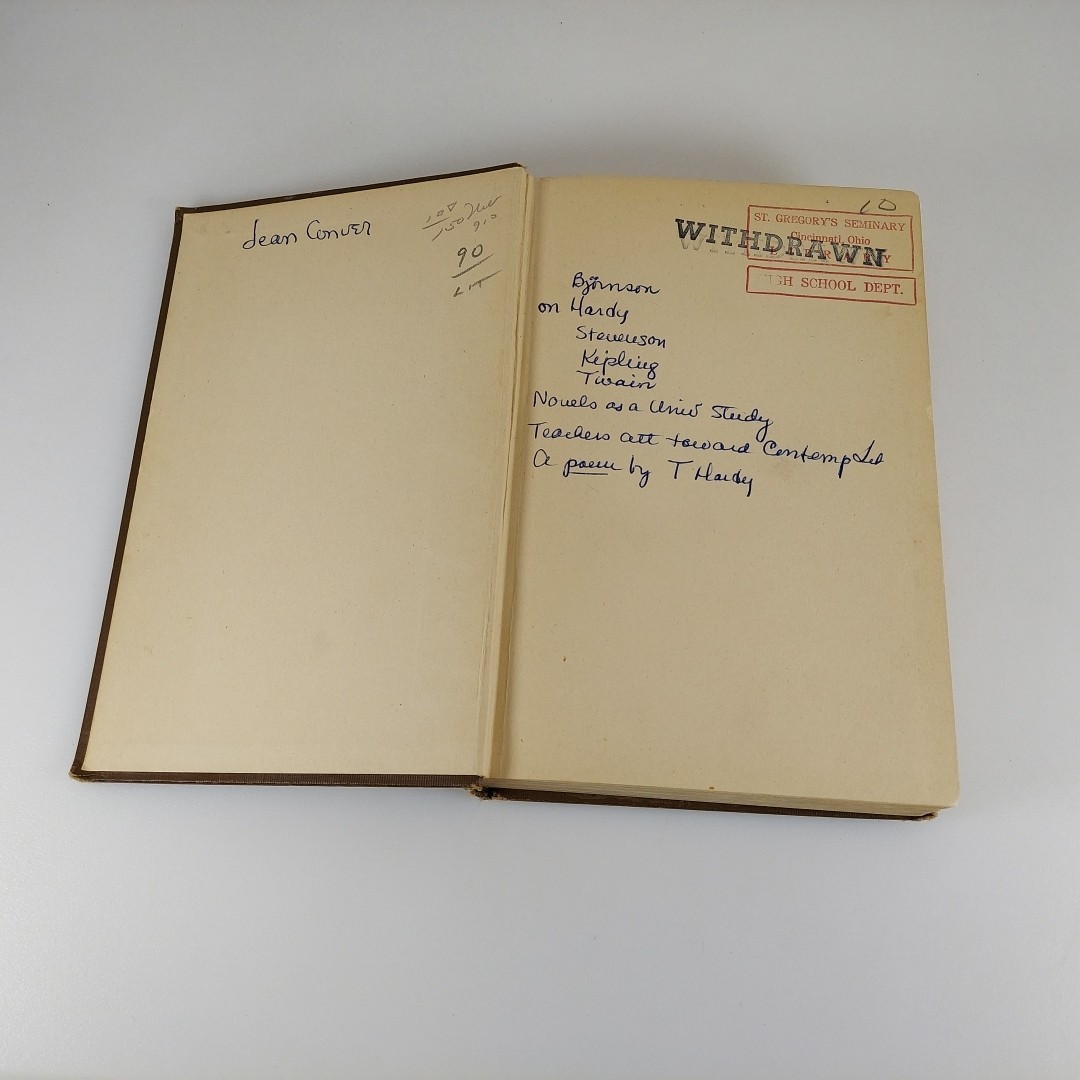 Jean Conver
108
150
910
90
LIT
10
ST. GREGORY'S SEMINARY
Cincinnati, Ohio
WITHDRAWN
HIGH SCHOOL DEPT.
Björnson
on Hardy
Stevenson
Kipling
Twain
Novels as a Univ Study
Teachers att toward Contemp Lit
A poem by T Hardy